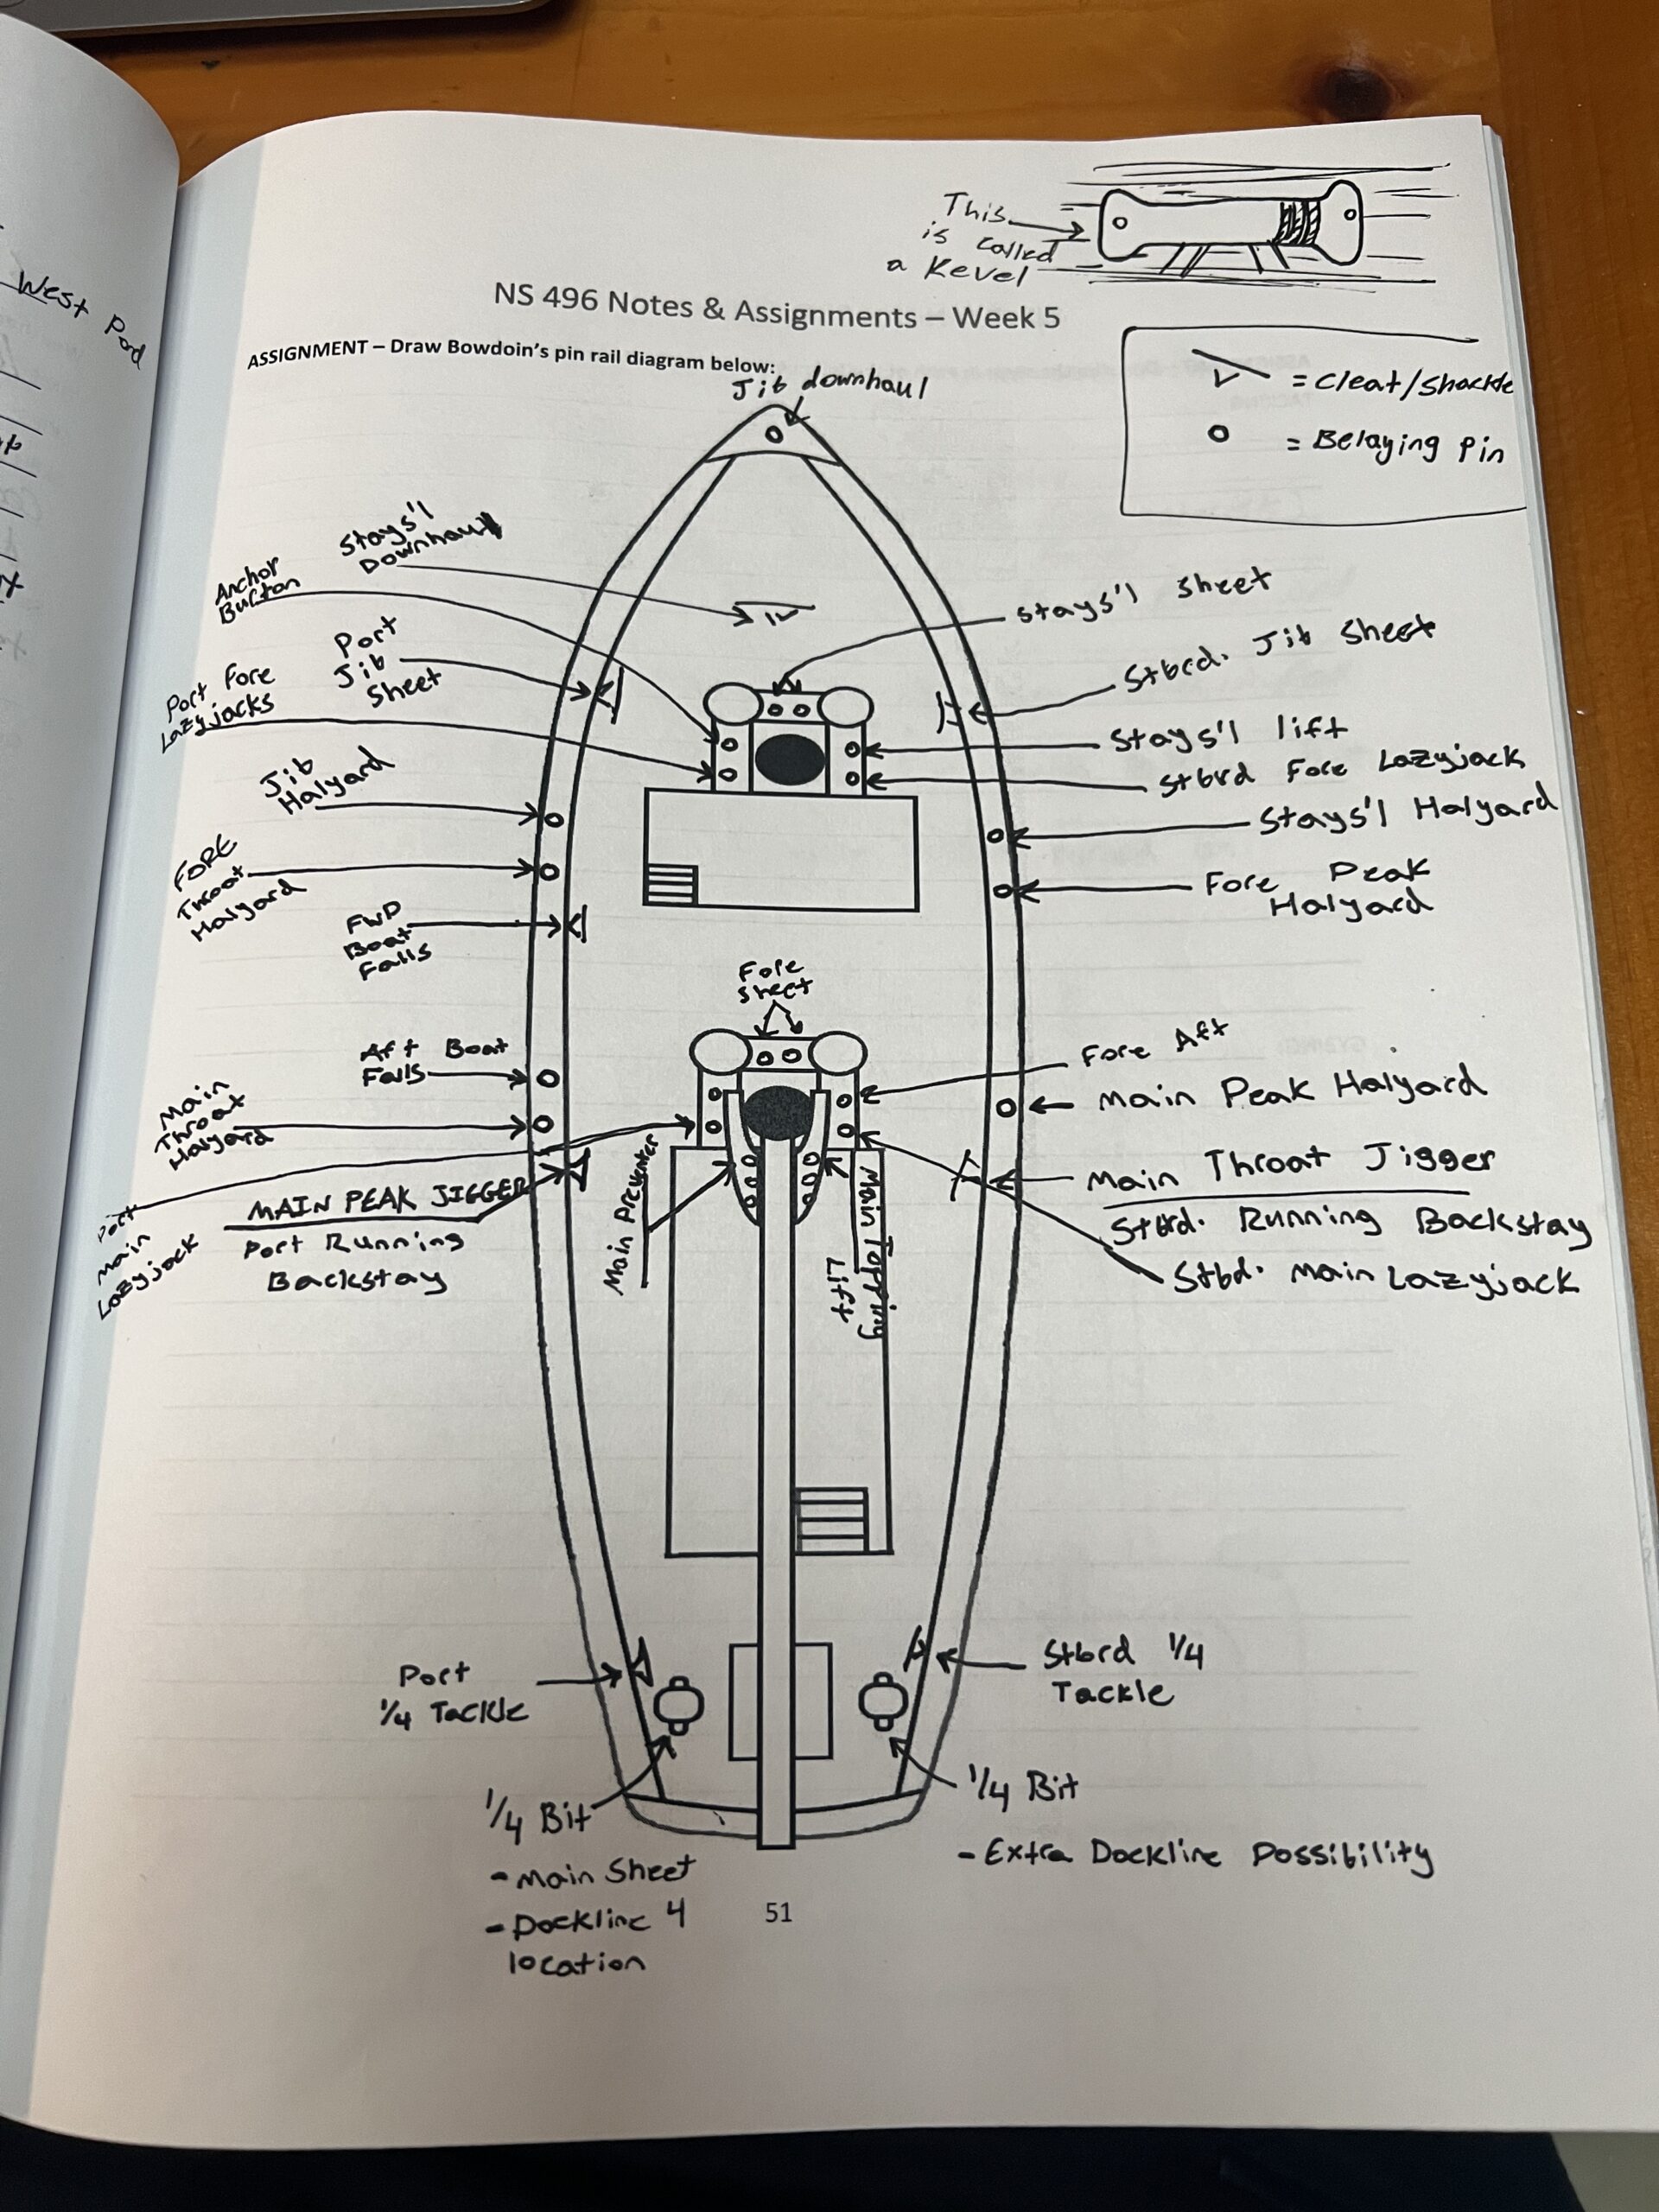 West Pod
This
is called
a Kevel
NS 496 Notes & Assignments – Week 5
ASSIGNMENT – Draw Bowdoin's pin rail diagram below:
= Cleat/Shackle
= Belaying Pin
Jib downhaul
Stays'l
Downhaul
Anchor
Burton
Port
Jib
Sheet
Port Fore
Lazyjacks
Jib
Halyard
FORE
Throat
Halyard
FWD
Boat
Falls
Stays'l Sheet
Stbrd. Jib Sheet
Stays'l lift
Stbrd Fore Lazyjack
Stays'l Halyard
Fore Peak
Halyard
Fore
Sheet
Aft Boat
Falls
Main
Throat
Halyard
Port
Main
Lazyjack
MAIN PEAK JIGGER
Port Running
Backstay
Main Preventer
Main Topping
Lift
Fore Aft
Main Peak Halyard
Main Throat Jigger
Stbrd. Running Backstay
Stbd. Main Lazyjack
Port
1/4 Tackle
Stbrd 1/4
Tackle
1/4 Bit
- Main Sheet
- Dockline 4
location
1/4 Bit
- Extra Dockline Possibility
51